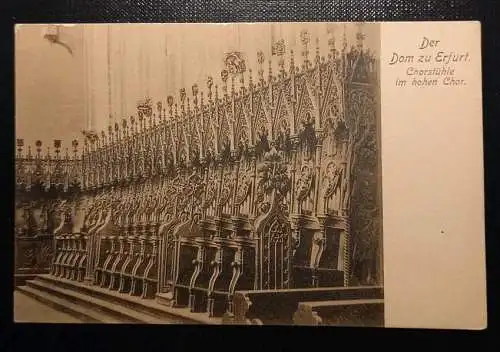 Der
Dom zu Erfurt.
Chorstühle
im hohen Chor.